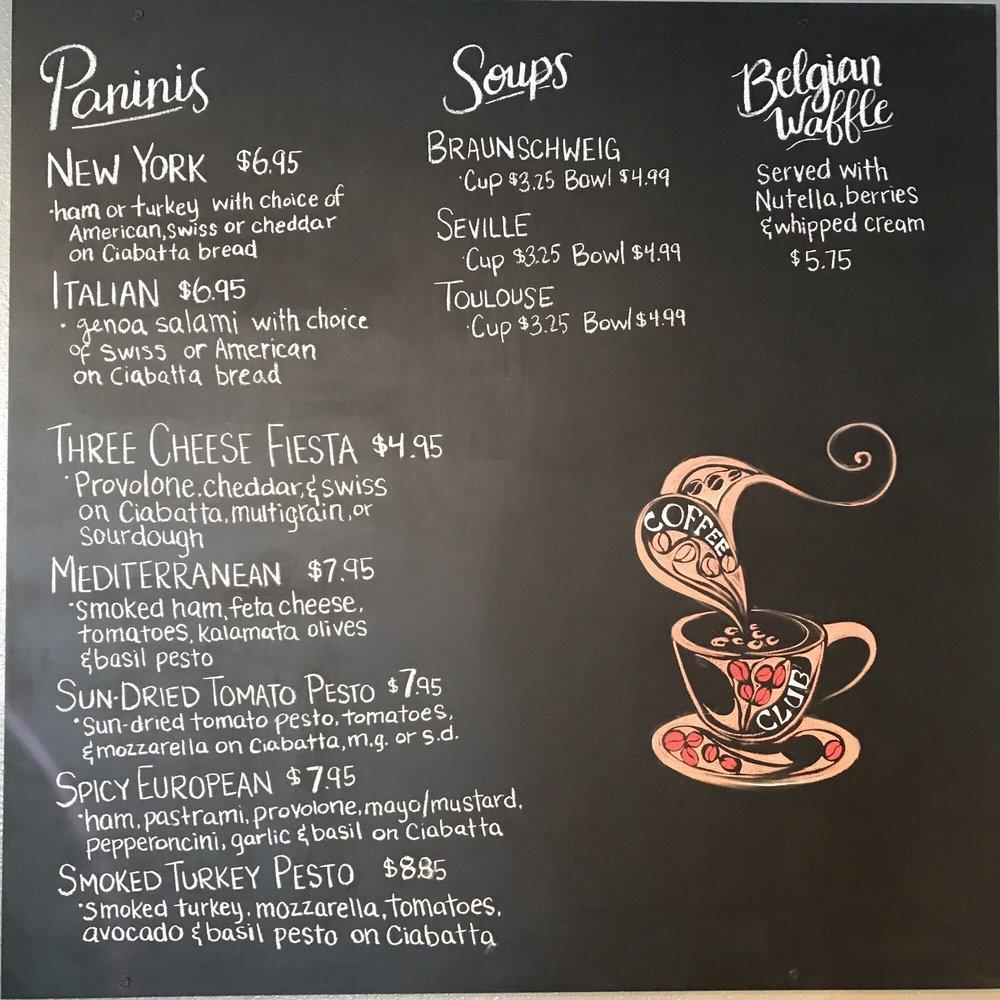 Paninis
NEW YORK $6.95
·ham or turkey with choice of
American, Swiss or cheddar
on Ciabatta bread
ITALIAN $6.95
· genoa salami with choice
of swiss or American
on Ciabatta bread
THREE CHEESE FIESTA $4.95
·Provolone, cheddar, & swiss
on Ciabatta, multigrain, or
Sourdough
MEDITERRANEAN $7.95
·smoked ham, feta cheese,
tomatoes, kalamata olives
& basil pesto
SUN-DRIED TOMATO PESTO $7.95
·Sun-dried tomato pesto, tomatoes,
& mozzarella on Ciabatta, m.g. or s.d.
SPICY EUROPEAN $7.95
·ham, pastrami, provolone, mayo/mustard,
pepperoncini, garlic & basil on Ciabatta
SMOKED TURKEY PESTO $8.85
·Smoked turkey, mozzarella, tomatoes,
avocado & basil pesto on Ciabatta
Soups
BRAUNSCHWEIG
·Cup $3.25 Bowl $4.99
SEVILLE
·Cup $3.25 Bowl $4.99
TOULOUSE
·Cup $3.25 Bowl $4.99
Belgian
Waffle
Served with
Nutella, berries
& whipped cream
$5.75
COFFEE
CLUB